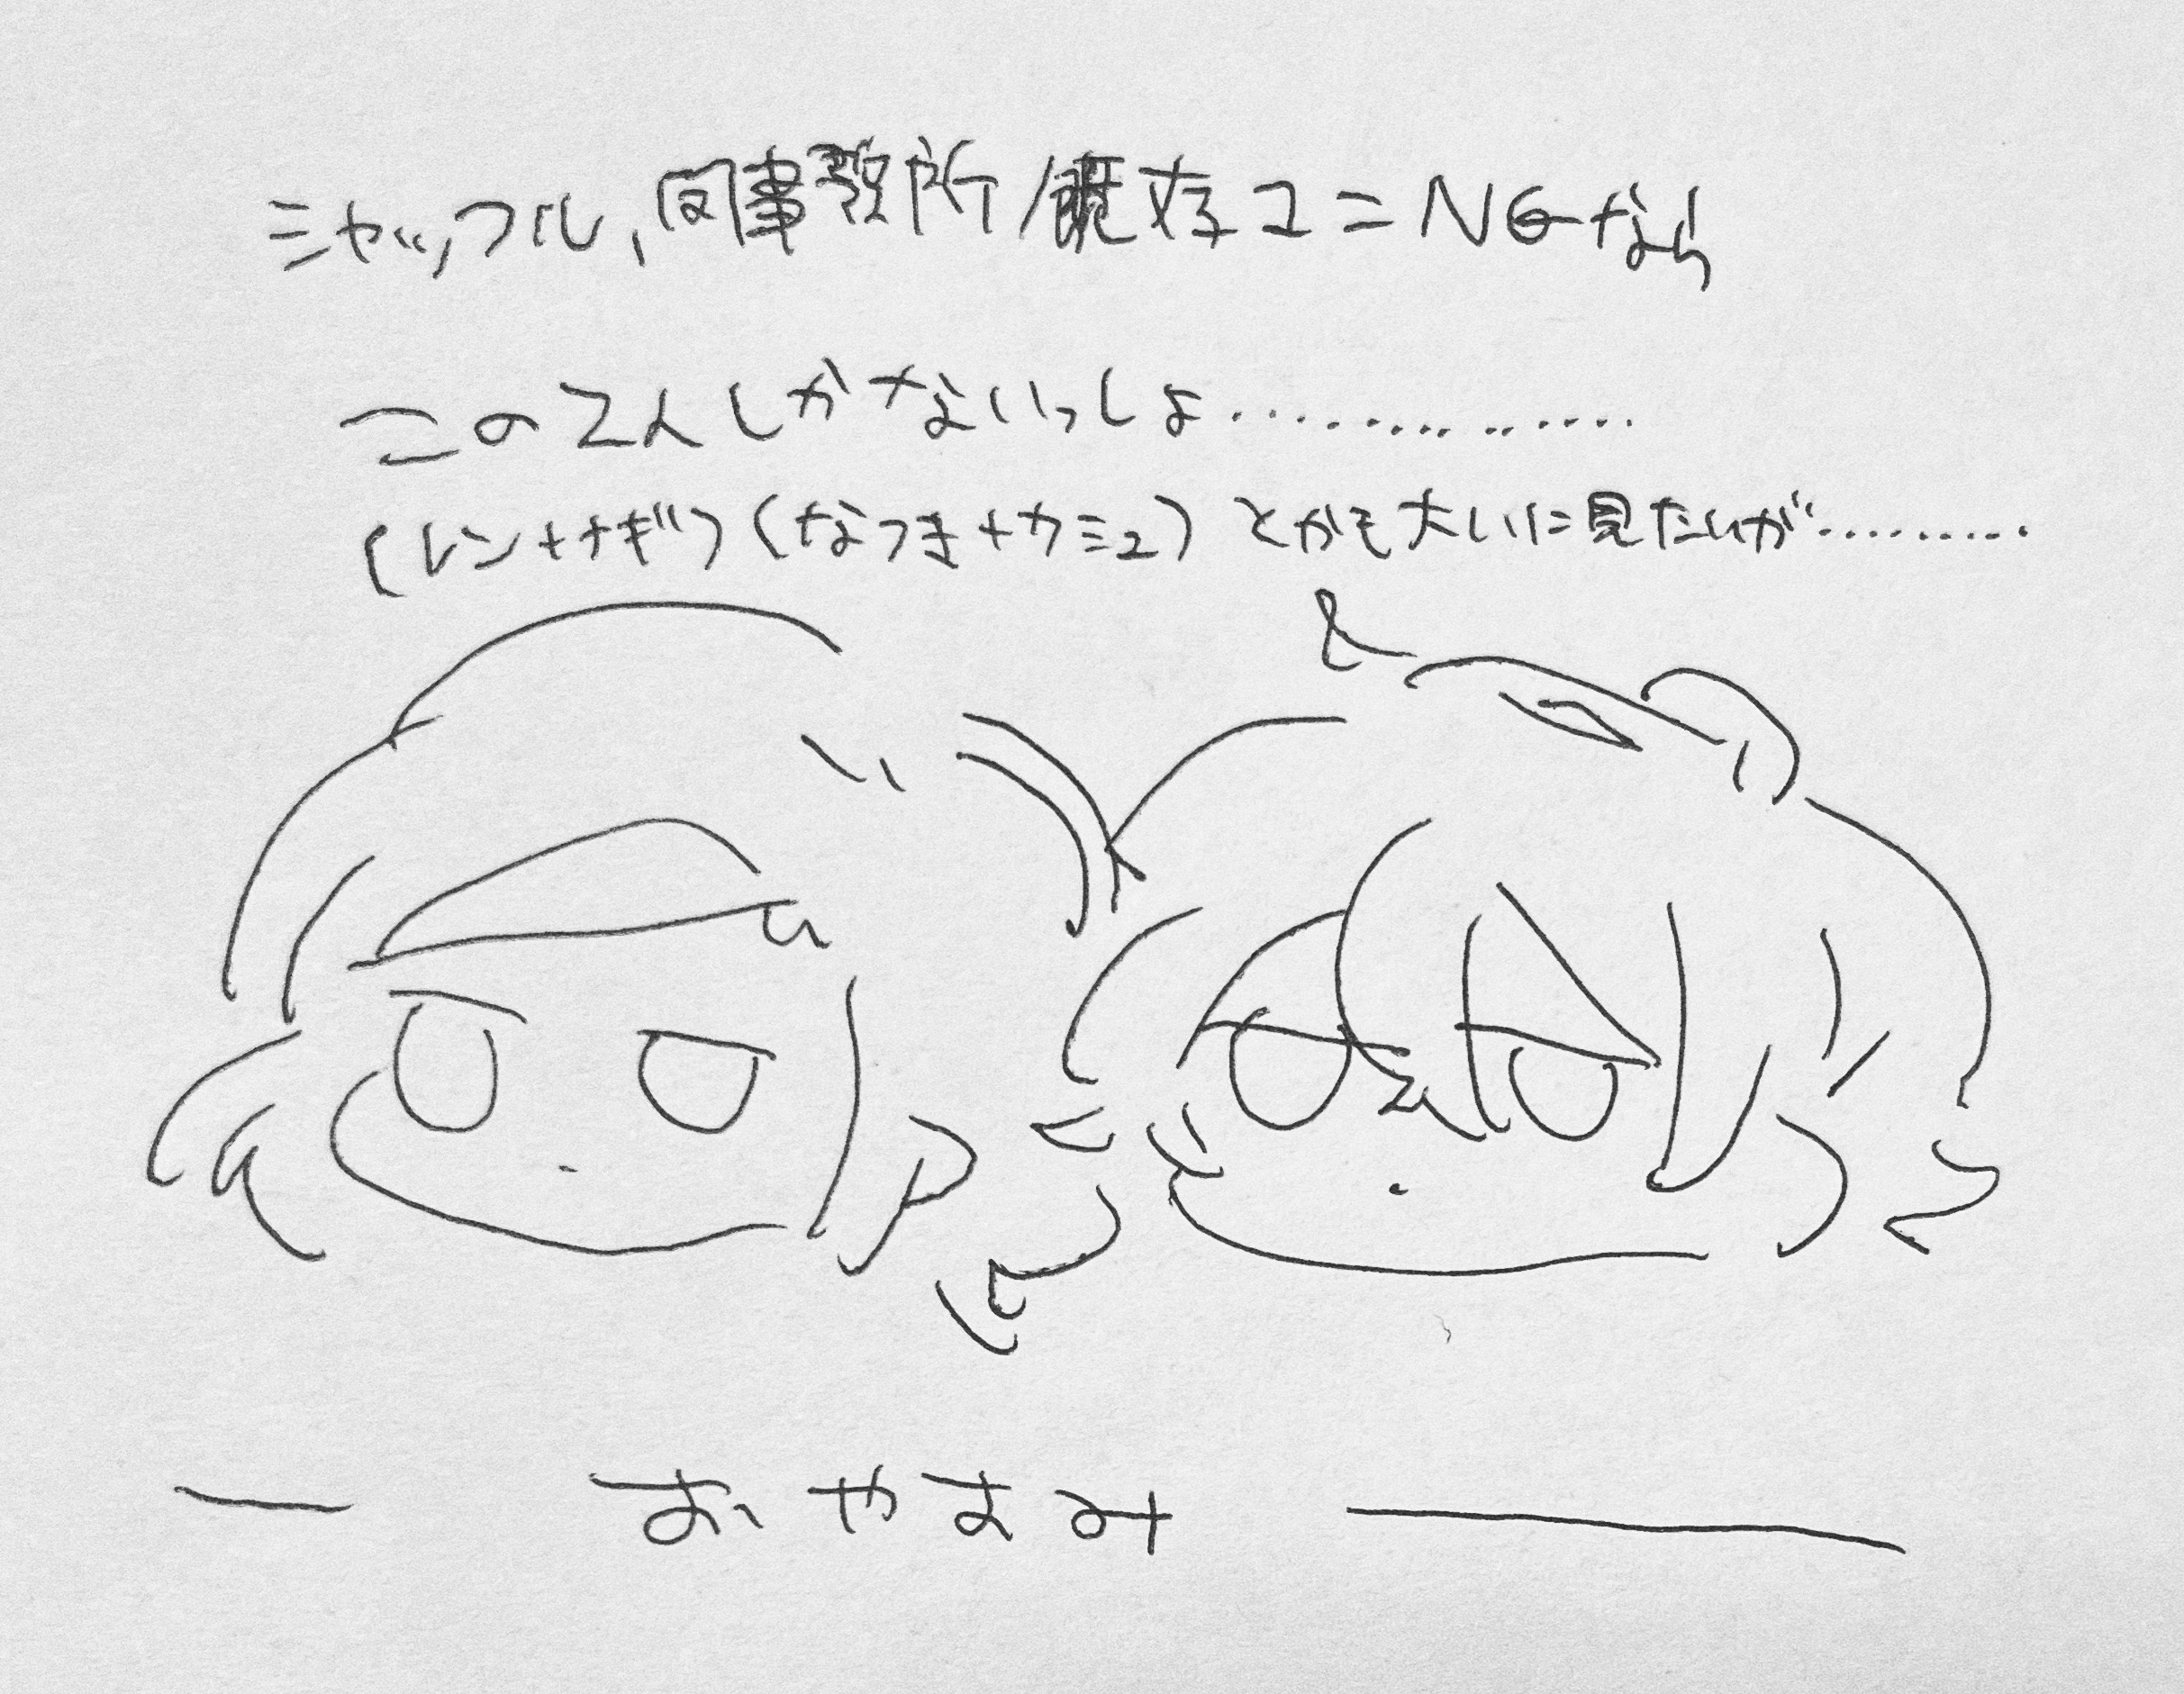 シャッフル、同事務所/既存ユニNGなら
この2人しかないっしょ……………
(レン+ナギ)(なつき+カミュ)とかも大いに見たいが………
— おやすみ —